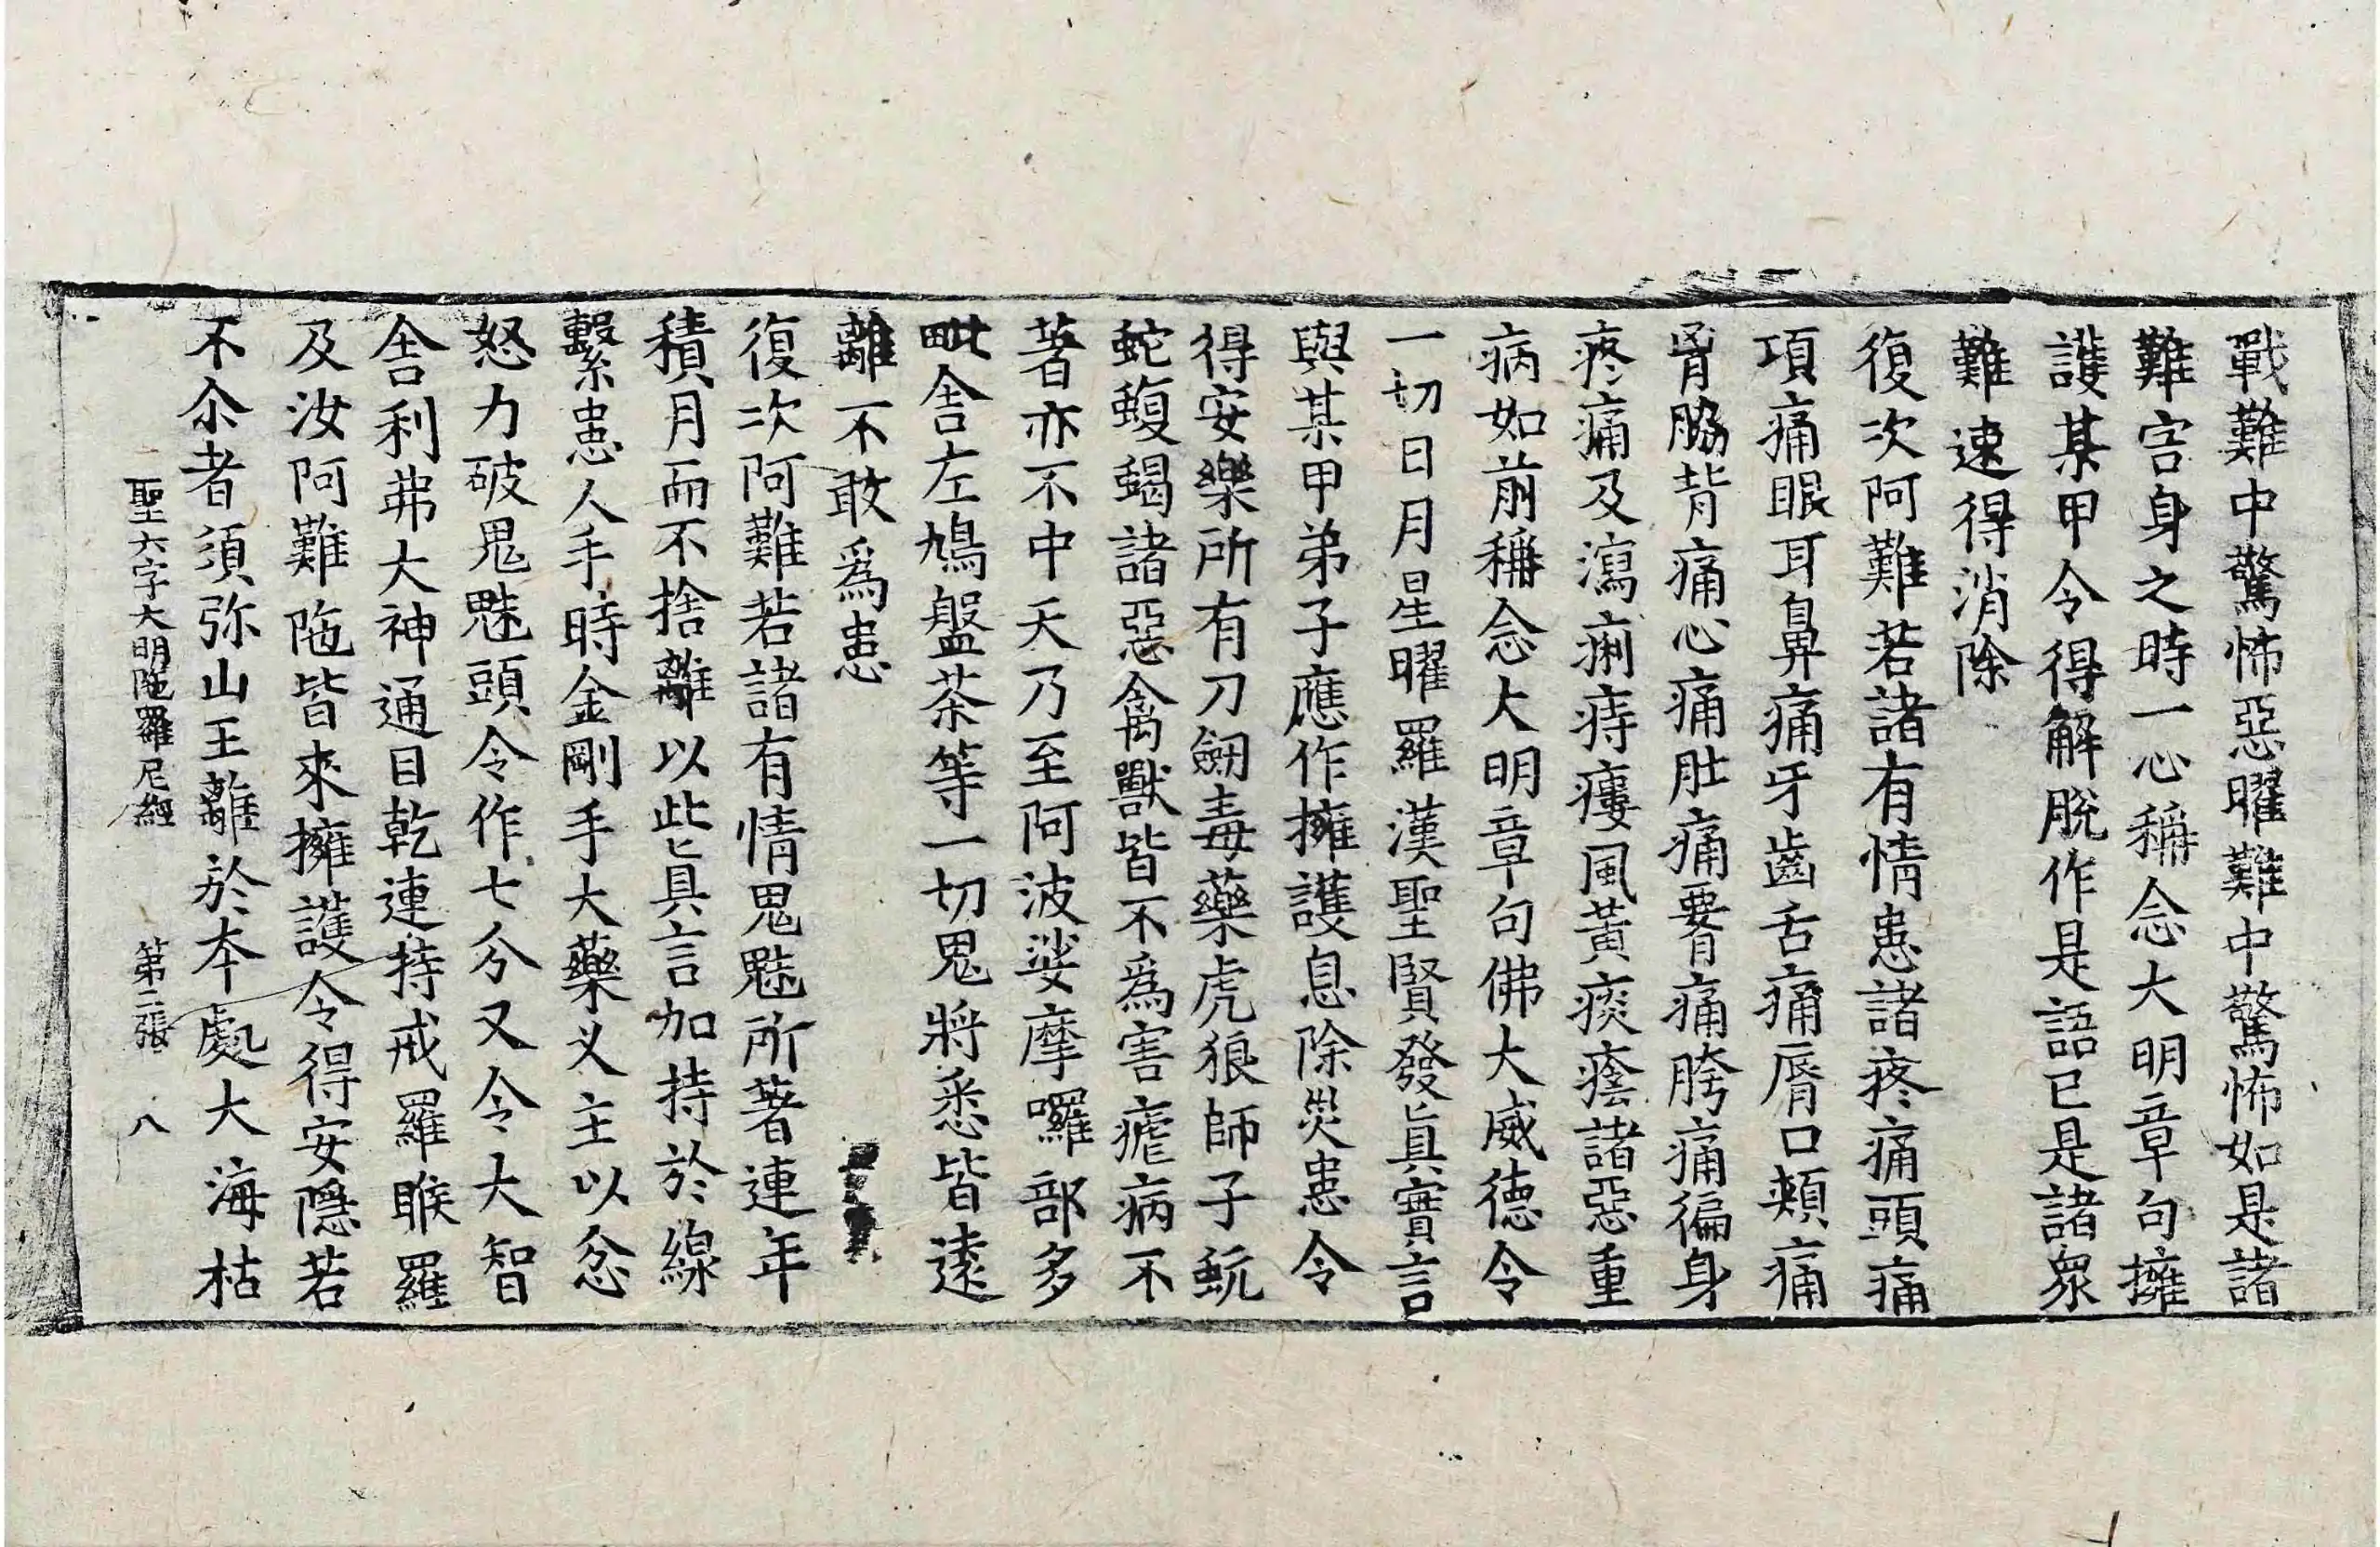 戰難中驚怖惡曜難中驚怖如是諸
難害身之時一心稱念大明章句擁
護某甲令得解脫作是語已是諸衆
難速得消除
復次阿難若諸有情患諸疼痛頭痛
項痛眼耳鼻痛牙齒舌痛脣口頰痛
胷脇背痛心痛肚痛䯒痛胯痛徧身
疼痛及瀉痢痔瘻風黃痰癊諸惡重
病如前稱念大明章句佛大威德令
一切日月星曜羅漢聖賢發眞實言
與某甲弟子應作擁護息除災患令
得安樂所有刀劒毒藥虎狼師子蚖
蛇蝮蝎諸惡禽獸皆不爲害瘧病不
著亦不中夭乃至阿波娑摩囉部多
毗舍左鳩盤茶等一切鬼將悉皆遠
離不敢爲患
復次阿難若諸有情鬼魅所著連年
積月而不捨離以此眞言加持於線
繫患人手時金剛手大藥叉主以忿
怒力破鬼魅頭令作七分又令大智
舍利弗大神通目乾連持戒羅睺羅
及汝阿難陁皆來擁護令得安隱若
不尒者須弥山王離於本處大海枯
聖六字大明陁羅尼經 第二張 八